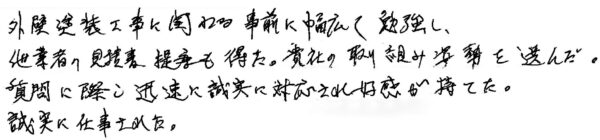 外壁塗装工事に関わる事前に幅広く勉強し、
他業者の見積書提案も得た。貴社の取り組み姿勢を選んだ。
質問に際し迅速に誠実に対応され好感が持てた。
誠実に仕事された。